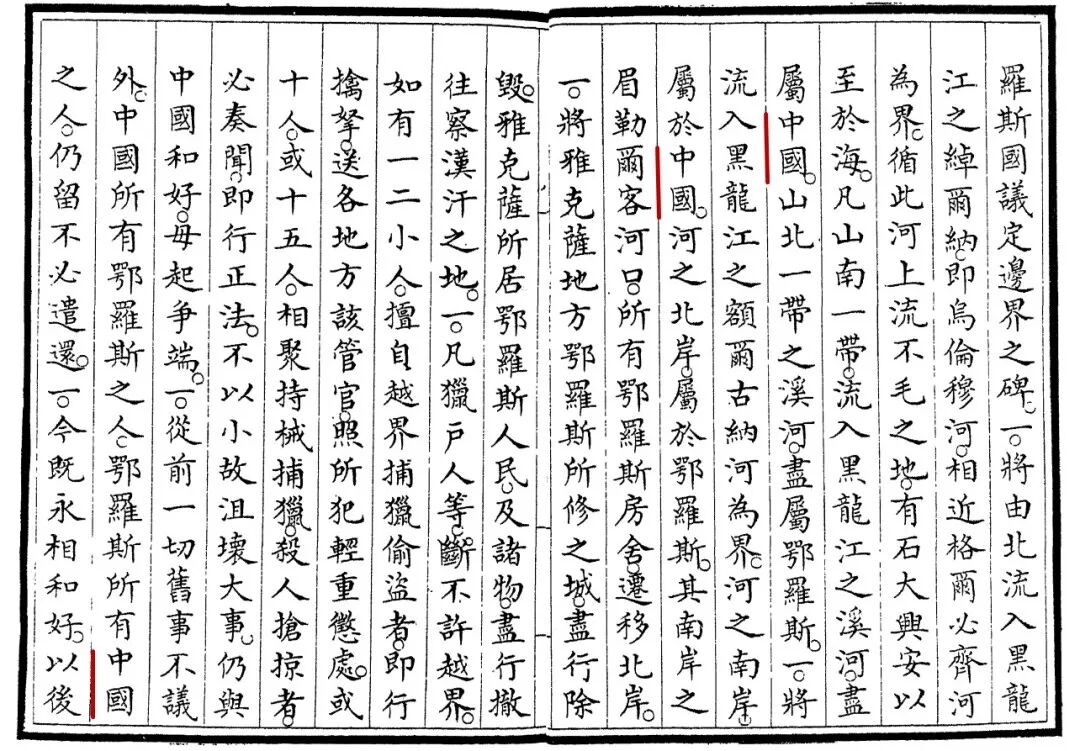 羅斯國議定邊界之碑。一。將由北流入黑龍
江之綽爾納。即烏倫穆河。相近格爾必齊河
為界。循此河上流不毛之地。有石大興安以
至於海。凡山南一帶。流入黑龍江之溪河。盡
屬中國。山北一帶之溪河。盡屬鄂羅斯。一。將
流入黑龍江之額爾古納河為界。河之南岸。
屬於中國。河之北岸。屬於鄂羅斯。其南岸之
眉勒爾客河口。所有鄂羅斯房舍。遷移北岸。
一。將雅克薩地方鄂羅斯所修之城。盡行除
毀。雅克薩所居鄂羅斯人民。及諸物。盡行撤
往察漢汗之地。一。凡獵戶人等。斷不許越界。
如有一二小人。擅自越界捕獵偷盜者。即行
擒拏。送各地方該管官。照所犯輕重懲處。或
十人。或十五人。相聚持械捕獵。殺人搶掠者。
必奏聞。即行正法。不以小故沮壞大事。仍與
中國和好。毋起爭端。一。從前一切舊事不議
外。中國所有鄂羅斯之人。鄂羅斯所有中國
之人。仍留不必遣還。一。今既永相和好。以後